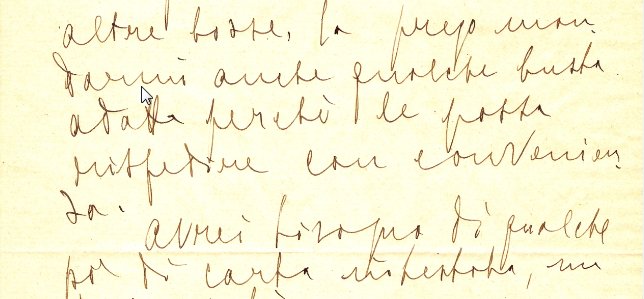 altre bozze, la prego man-
darmi anche qualche busta
adatta perchè le possa
rispedire con convenien-
za.
Avrei bisogno di qualche
po' di carta intestata, mi